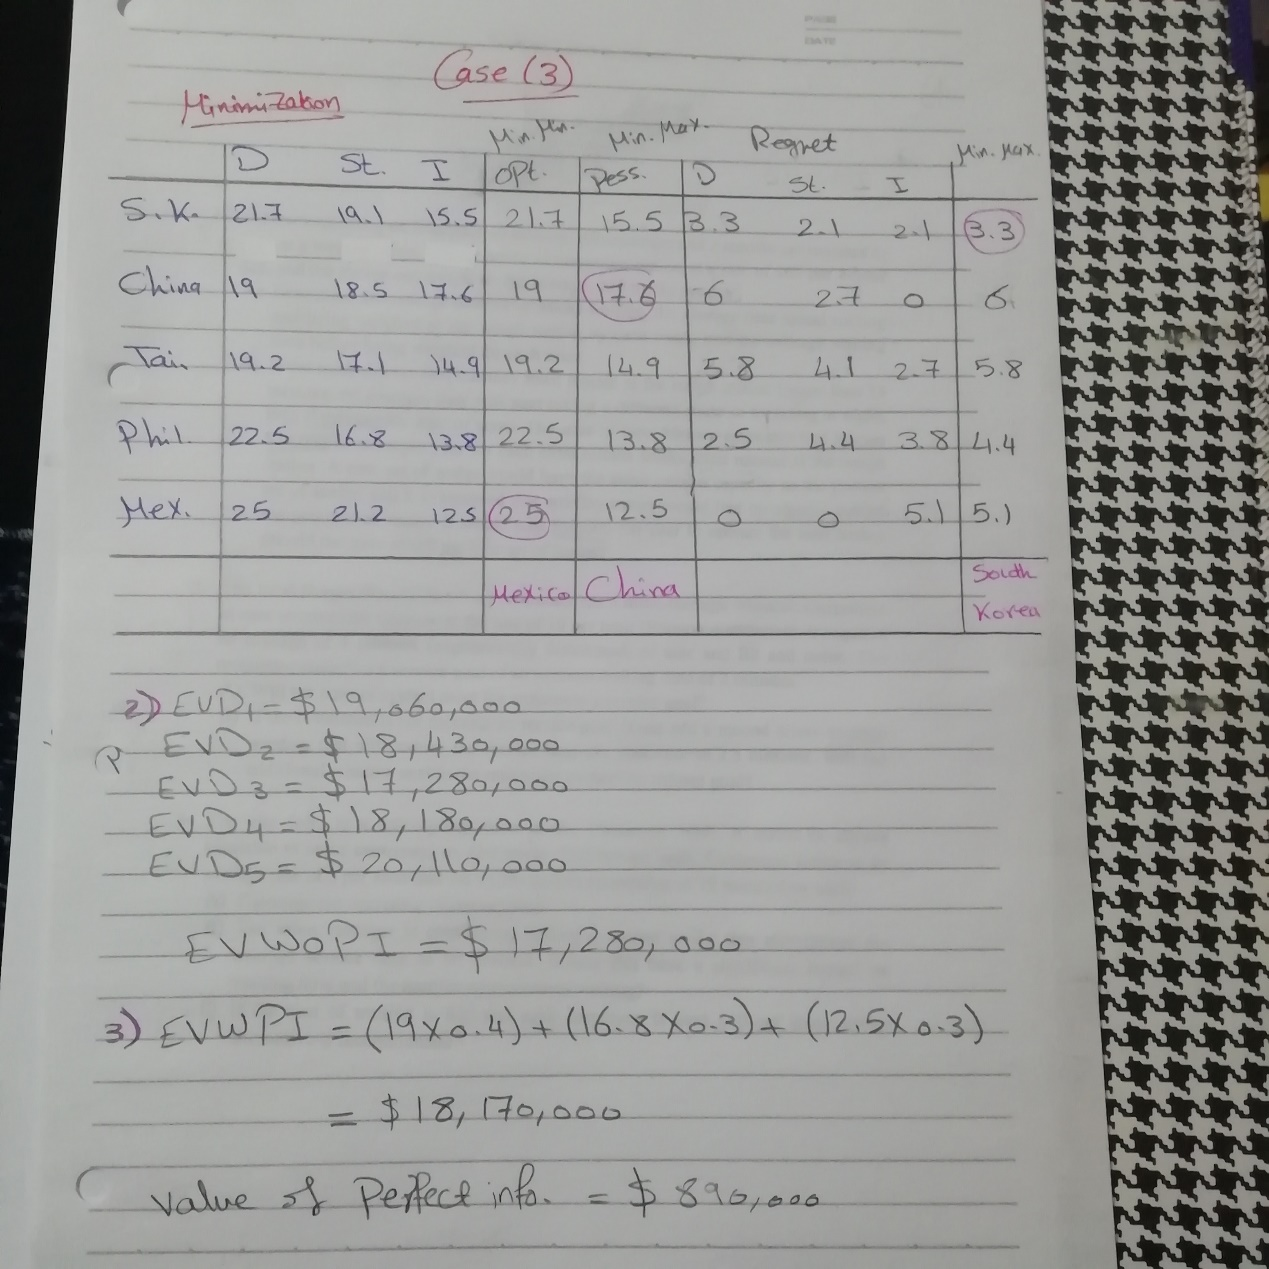 PAGE
DATE
Case (3)
Minimization
Min. Min. Min. Max. Regret Min. Max.
D St. I Opt. Pess. D St. I
S.K. 21.7 19.1 15.5 21.7 15.5 3.3 2.1 2.1 3.3
China 19 18.5 17.6 19 17.6 6 2.7 0 6
Tai. 19.2 17.1 14.9 19.2 14.9 5.8 4.1 2.7 5.8
Phil. 22.5 16.8 13.8 22.5 13.8 2.5 4.4 3.8 4.4
Mex. 25 21.2 12.5 25 12.5 0 0 5.1 5.1
Mexico China South
Korea
2) EVD1 = $19,060,000
EVD2 = $18,430,000
EVD3 = $17,280,000
EVD4 = $18,180,000
EVD5 = $20,110,000
EVWOPI = $17,280,000
3) EVWPI = (19x0.4)+(16.8x0.3)+(12.5x0.3)
= $18,170,000
Value of Perfect info. = $890,000